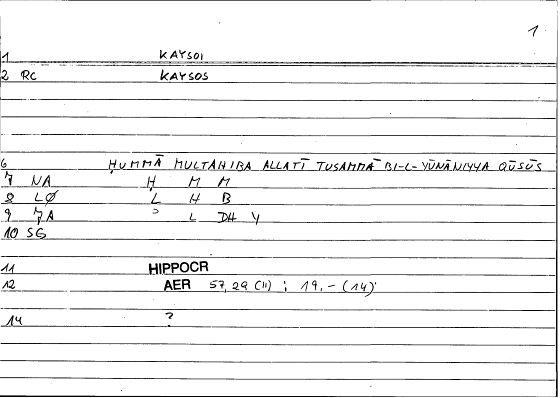 1
1 KAYSOI
2 RC KAYSOS
6 ḤUMMĀ MULTAHIBA ALLATĪ TUSAMMĀ BI-L-YŪNĀNIYYA QŪSŪS
7 NA Ḥ M M
8 LØ L H B
9 7A ʾ L DH Y
10 SG
11 HIPPOCR
12 AER 57,29 (11) ; 19,- (14)
14 ?